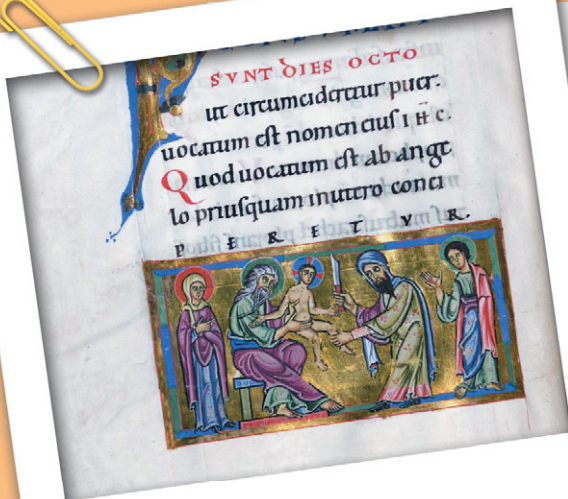 SVNT DIES OCTO
ut circumcideretur puer.
uocatum est nomen eius IHC.
Quod uocatum est ab ange
lo priusquam inutero conci
PERETVR.